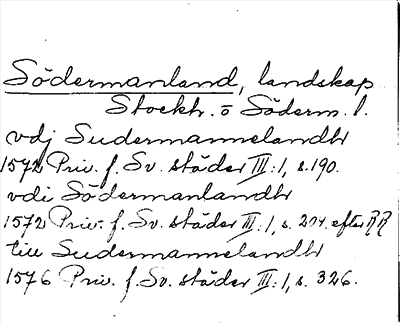 Södermanland, landskap
Stockh. o Söderm. l.
vdj Sudermannelandht
1572 Priv. f. Sv. städer III:1, s. 190.
vdi Södermanlandht
1572 Priv. f. Sv. städer III:1, s. 204. efter RR
till Sudermannelandht
1576 Priv. f. Sv. städer III:1, s. 326.